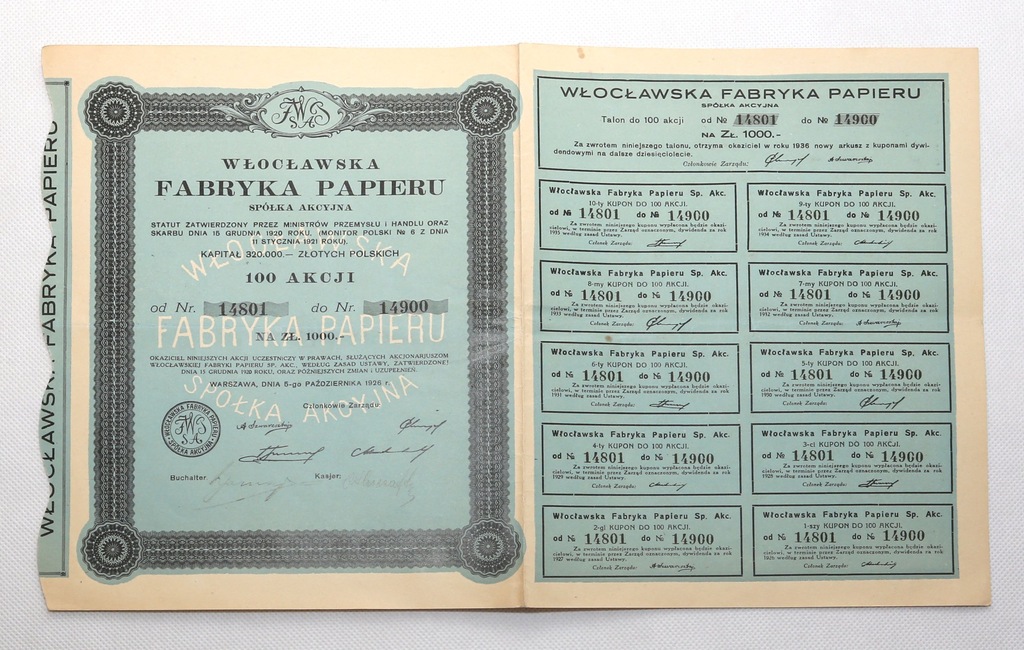 WŁOCŁAWSKA FABRYKA PAPIERU
WŁOCŁAWSKA
FABRYKA PAPIERU
SPÓŁKA AKCYJNA
STATUT ZATWIERDZONY PRZEZ MINISTRÓW PRZEMYSŁU I HANDLU ORAZ
SKARBU DNIA 15 GRUDNIA 1920 ROKU, (MONITOR POLSKI № 6 Z DNIA
11 STYCZNIA 1921 ROKU).
KAPITAŁ 320.000.— ZŁOTYCH POLSKICH
WŁOCŁAWSKA
100 AKCJI
od Nr. 14801 do Nr. 14900
FABRYKA PAPIERU
NA ZŁ. 1000.-
OKAZICIEL NINIEJSZYCH AKCJI UCZESTNICZY W PRAWACH, SŁUŻĄCYCH AKCJONARJUSZOM
WŁOCŁAWSKIEJ FABRYKI PAPIERU SP. AKC., WEDŁUG ZASAD USTAWY, ZATWIERDZONEJ
DNIA 15 GRUDNIA 1920 ROKU, ORAZ PÓŹNIEJSZYCH ZMIAN I UZUPEŁNIEŃ.
WARSZAWA, DNIA 5-go PAŹDZIERNIKA 1926 r.
SPÓŁKA AKCYJNA
Członkowie Zarządu
WŁOCŁAWSKA FABRYKA PAPIERU
SPÓŁKA AKCYJNA
Buchalter: Kasjer:
WŁOCŁAWSKA FABRYKA PAPIERU
SPÓŁKA AKCYJNA
Talon do 100 akcji od № 14801 do № 14900
NA ZŁ. 1000.-
Za zwrotem niniejszego talonu, otrzyma okaziciel w roku 1936 nowy arkusz z kuponami dywi-
dendowymi na dalsze dziesięciolecie.
Członkowie Zarządu:
Włocławska Fabryka Papieru Sp. Akc.
10-ty KUPON DO 100 AKCJI.
od № 14801 do № 14900
Za zwrotem niniejszego kuponu wypłacona będzie okazi-
cielowi, w terminie przez Zarząd oznaczonym, dywidenda za rok
1935 według zasad Ustawy.
Członek Zarządu:
Włocławska Fabryka Papieru Sp. Akc.
9-ty KUPON DO 100 AKCJI.
od № 14801 do № 14900
Za zwrotem niniejszego kuponu wypłacona będzie okazi-
cielowi, w terminie przez Zarząd oznaczonym, dywidenda za rok
1934 według zasad Ustawy.
Członek Zarządu:
Włocławska Fabryka Papieru Sp. Akc.
8-my KUPON DO 100 AKCJI.
od № 14801 do № 14900
Za zwrotem niniejszego kuponu wypłacona będzie okazi-
cielowi, w terminie przez Zarząd oznaczonym, dywidenda za rok
1933 według zasad Ustawy.
Członek Zarządu:
Włocławska Fabryka Papieru Sp. Akc.
7-my KUPON DO 100 AKCJI.
od № 14801 do № 14900
Za zwrotem niniejszego kuponu wypłacona będzie okazi-
cielowi, w terminie przez Zarząd oznaczonym, dywidenda za rok
1932 według zasad Ustawy.
Członek Zarządu:
Włocławska Fabryka Papieru Sp. Akc.
6-ty KUPON DO 100 AKCJI.
od № 14801 do № 14900
Za zwrotem niniejszego kuponu wypłacona będzie okazi-
cielowi, w terminie przez Zarząd oznaczonym, dywidenda za rok
1931 według zasad Ustawy.
Członek Zarządu:
Włocławska Fabryka Papieru Sp. Akc.
5-ty KUPON DO 100 AKCJI.
od № 14801 do № 14900
Za zwrotem niniejszego kuponu wypłacona będzie okazi-
cielowi, w terminie przez Zarząd oznaczonym, dywidenda za rok
1930 według zasad Ustawy.
Członek Zarządu:
Włocławska Fabryka Papieru Sp. Akc.
4-ty KUPON DO 100 AKCJI.
od № 14801 do № 14900
Za zwrotem niniejszego kuponu wypłacona będzie okazi-
cielowi, w terminie przez Zarząd oznaczonym, dywidenda za rok
1929 według zasad Ustawy.
Członek Zarządu:
Włocławska Fabryka Papieru Sp. Akc.
3-ci KUPON DO 100 AKCJI.
od № 14801 do № 14900
Za zwrotem niniejszego kuponu wypłacona będzie okazi-
cielowi, w terminie przez Zarząd oznaczonym, dywidenda za rok
1928 według zasad Ustawy.
Członek Zarządu:
Włocławska Fabryka Papieru Sp. Akc.
2-gi KUPON DO 100 AKCJI.
od № 14801 do № 14900
Za zwrotem niniejszego kuponu wypłacona będzie okazi-
cielowi, w terminie przez Zarząd oznaczonym, dywidenda za rok
1927 według zasad Ustawy.
Członek Zarządu:
Włocławska Fabryka Papieru Sp. Akc.
1-szy KUPON DO 100 AKCJI.
od № 14801 do № 14900
Za zwrotem niniejszego kuponu wypłacona będzie okazi-
cielowi, w terminie przez Zarząd oznaczonym, dywidenda za rok
1926 według zasad Ustawy.
Członek Zarządu: